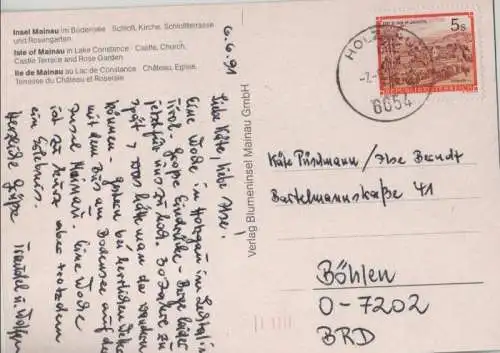 Insel Mainau im Bodensee Schloß, Kirche, Schloßterrasse
und Rosengarten
Isle of Mainau in Lake Constance Castle, Church,
Castle Terrace and Rose Garden
Ile de Mainau au Lac de Constance Château, Eglise,
Terrasse du Château et Roseraie
6.6.91
Liebe Käte, liebe Ilse!
Eine Woche in Holzgau im Lechtal in
Tirol - große Eindrücke - Berge leider
jetzt für uns zu hoch. 30 Jahre zu
spät, was hätte man da machen
können. gestern bei herrlichem Wetter
mit dem Bus am Bodensee auf der
Insel Mainau. Eine Woche
ist zu kurz aber trotzdem
ein Erlebnis.
Herzliche Grüße
Traudel u. Wolfgang
Verlag Blumeninsel Mainau GmbH
HOLZ
6654
5s
REPUBLIK ÖSTERREICH
Käte Püschmann / Ilse Berndt
Bartelmannstraße 41
Böhlen
O-7202
BRD